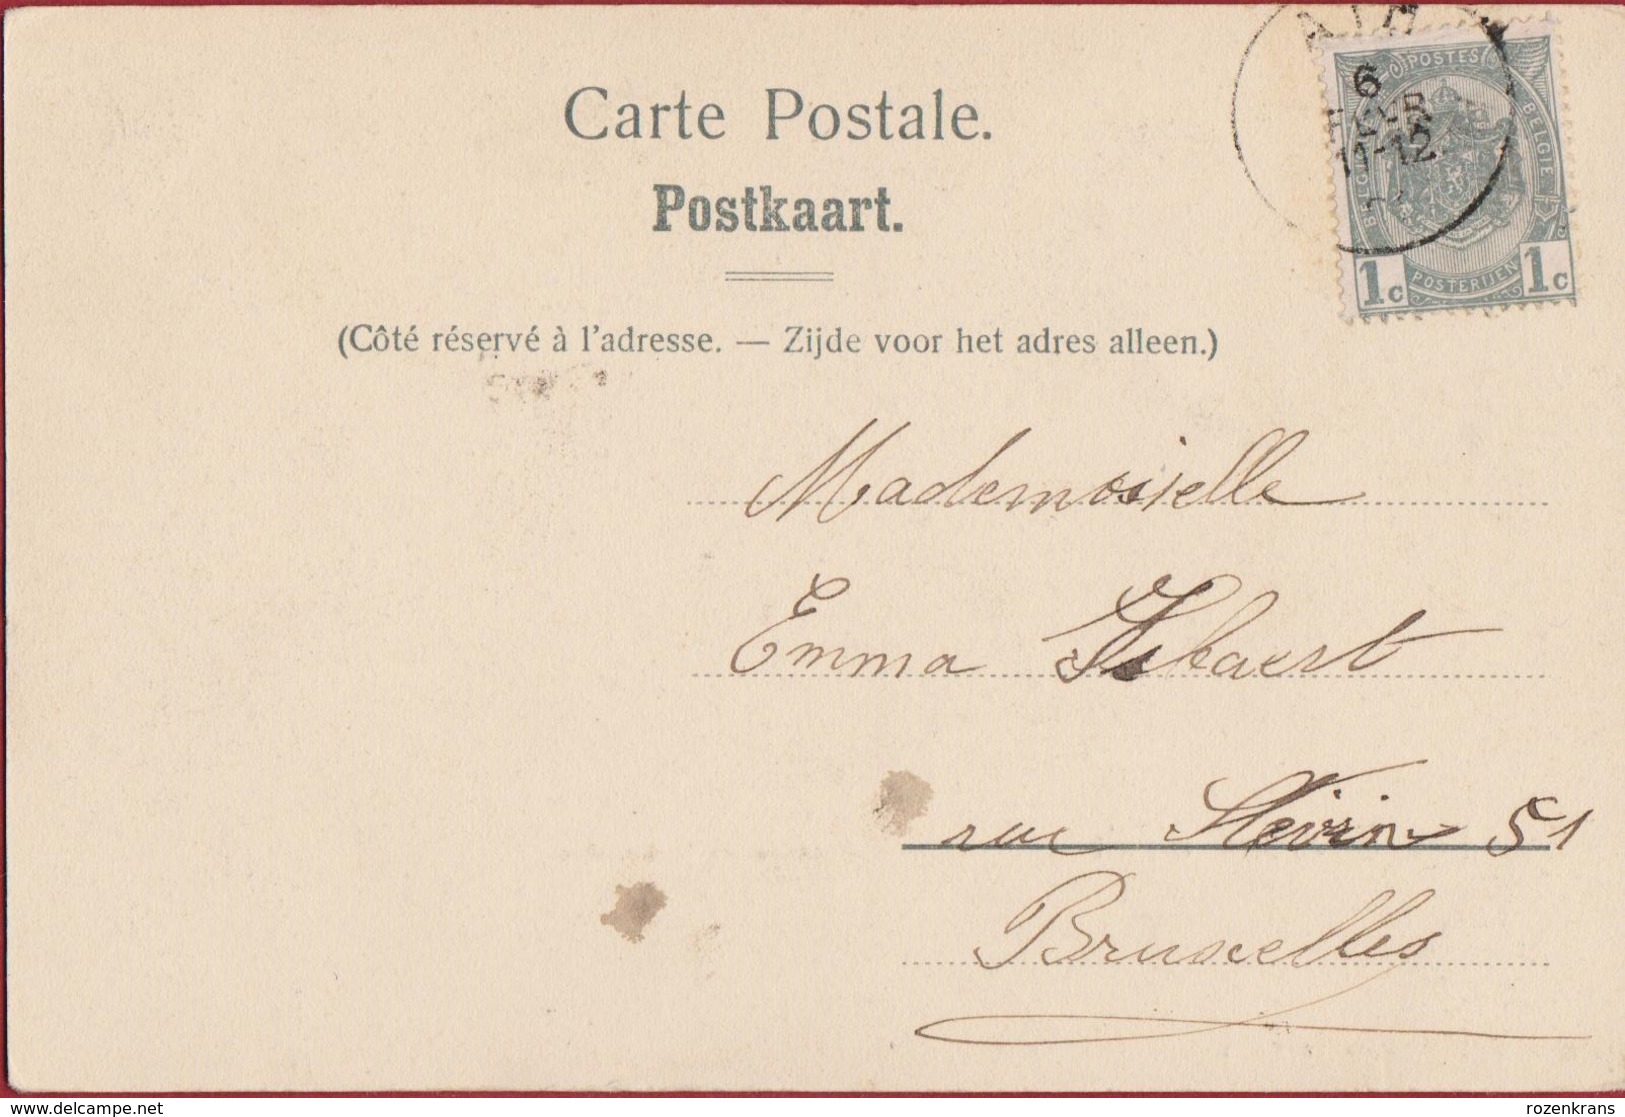 Carte Postale.
Postkaart.
(Côté réservé à l'adresse. — Zijde voor het adres alleen.)
6
11-12
POSTES
BELGIE
POSTERIJEN
1c 1c
Mademoiselle
Emma
rue Stévin 51
Bruxelles
delcampe.net
rozenkrans